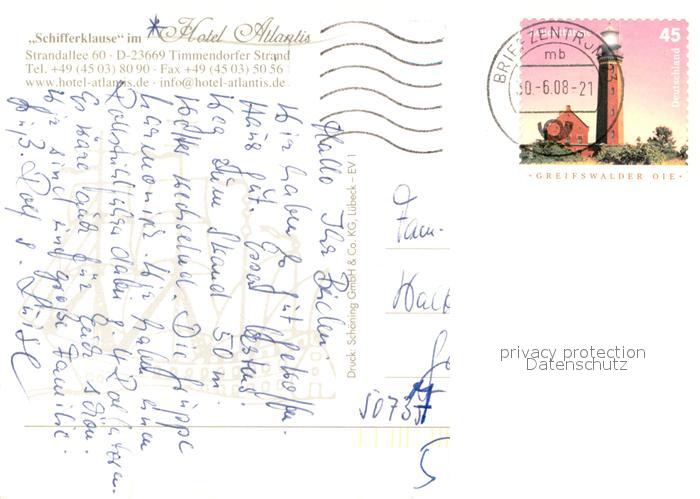 „Schifferklause" im * Hotel Atlantis
Strandallee 60 · D-23669 Timmendorfer Strand
Tel. +49 (45 03) 80 90 · Fax +49 (45 03) 50 56
www.hotel-atlantis.de · info@hotel-atlantis.de
Hallo Ihr Beiden
Wir haben es gut getroffen.
Haus gut, Essen bestens.
Weg zum Strand 50 m.
Wetter wechselnd. Die Truppe
harmoniert. Wir haben einen
Rollstuhlfahrer dabei u. 4 Rollatoren.
Es wäre auch für Euch schön.
Wir sind eine große Familie.
Gruß Rolf u.
Druck: Schöning GmbH & Co. KG, Lübeck – EV 1
Fam.
50735
BRIEFZENTRUM
mb
30.-6.08-21
45
Deutschland
· GREIFSWALDER OIE ·
privacy protection
Datenschutz